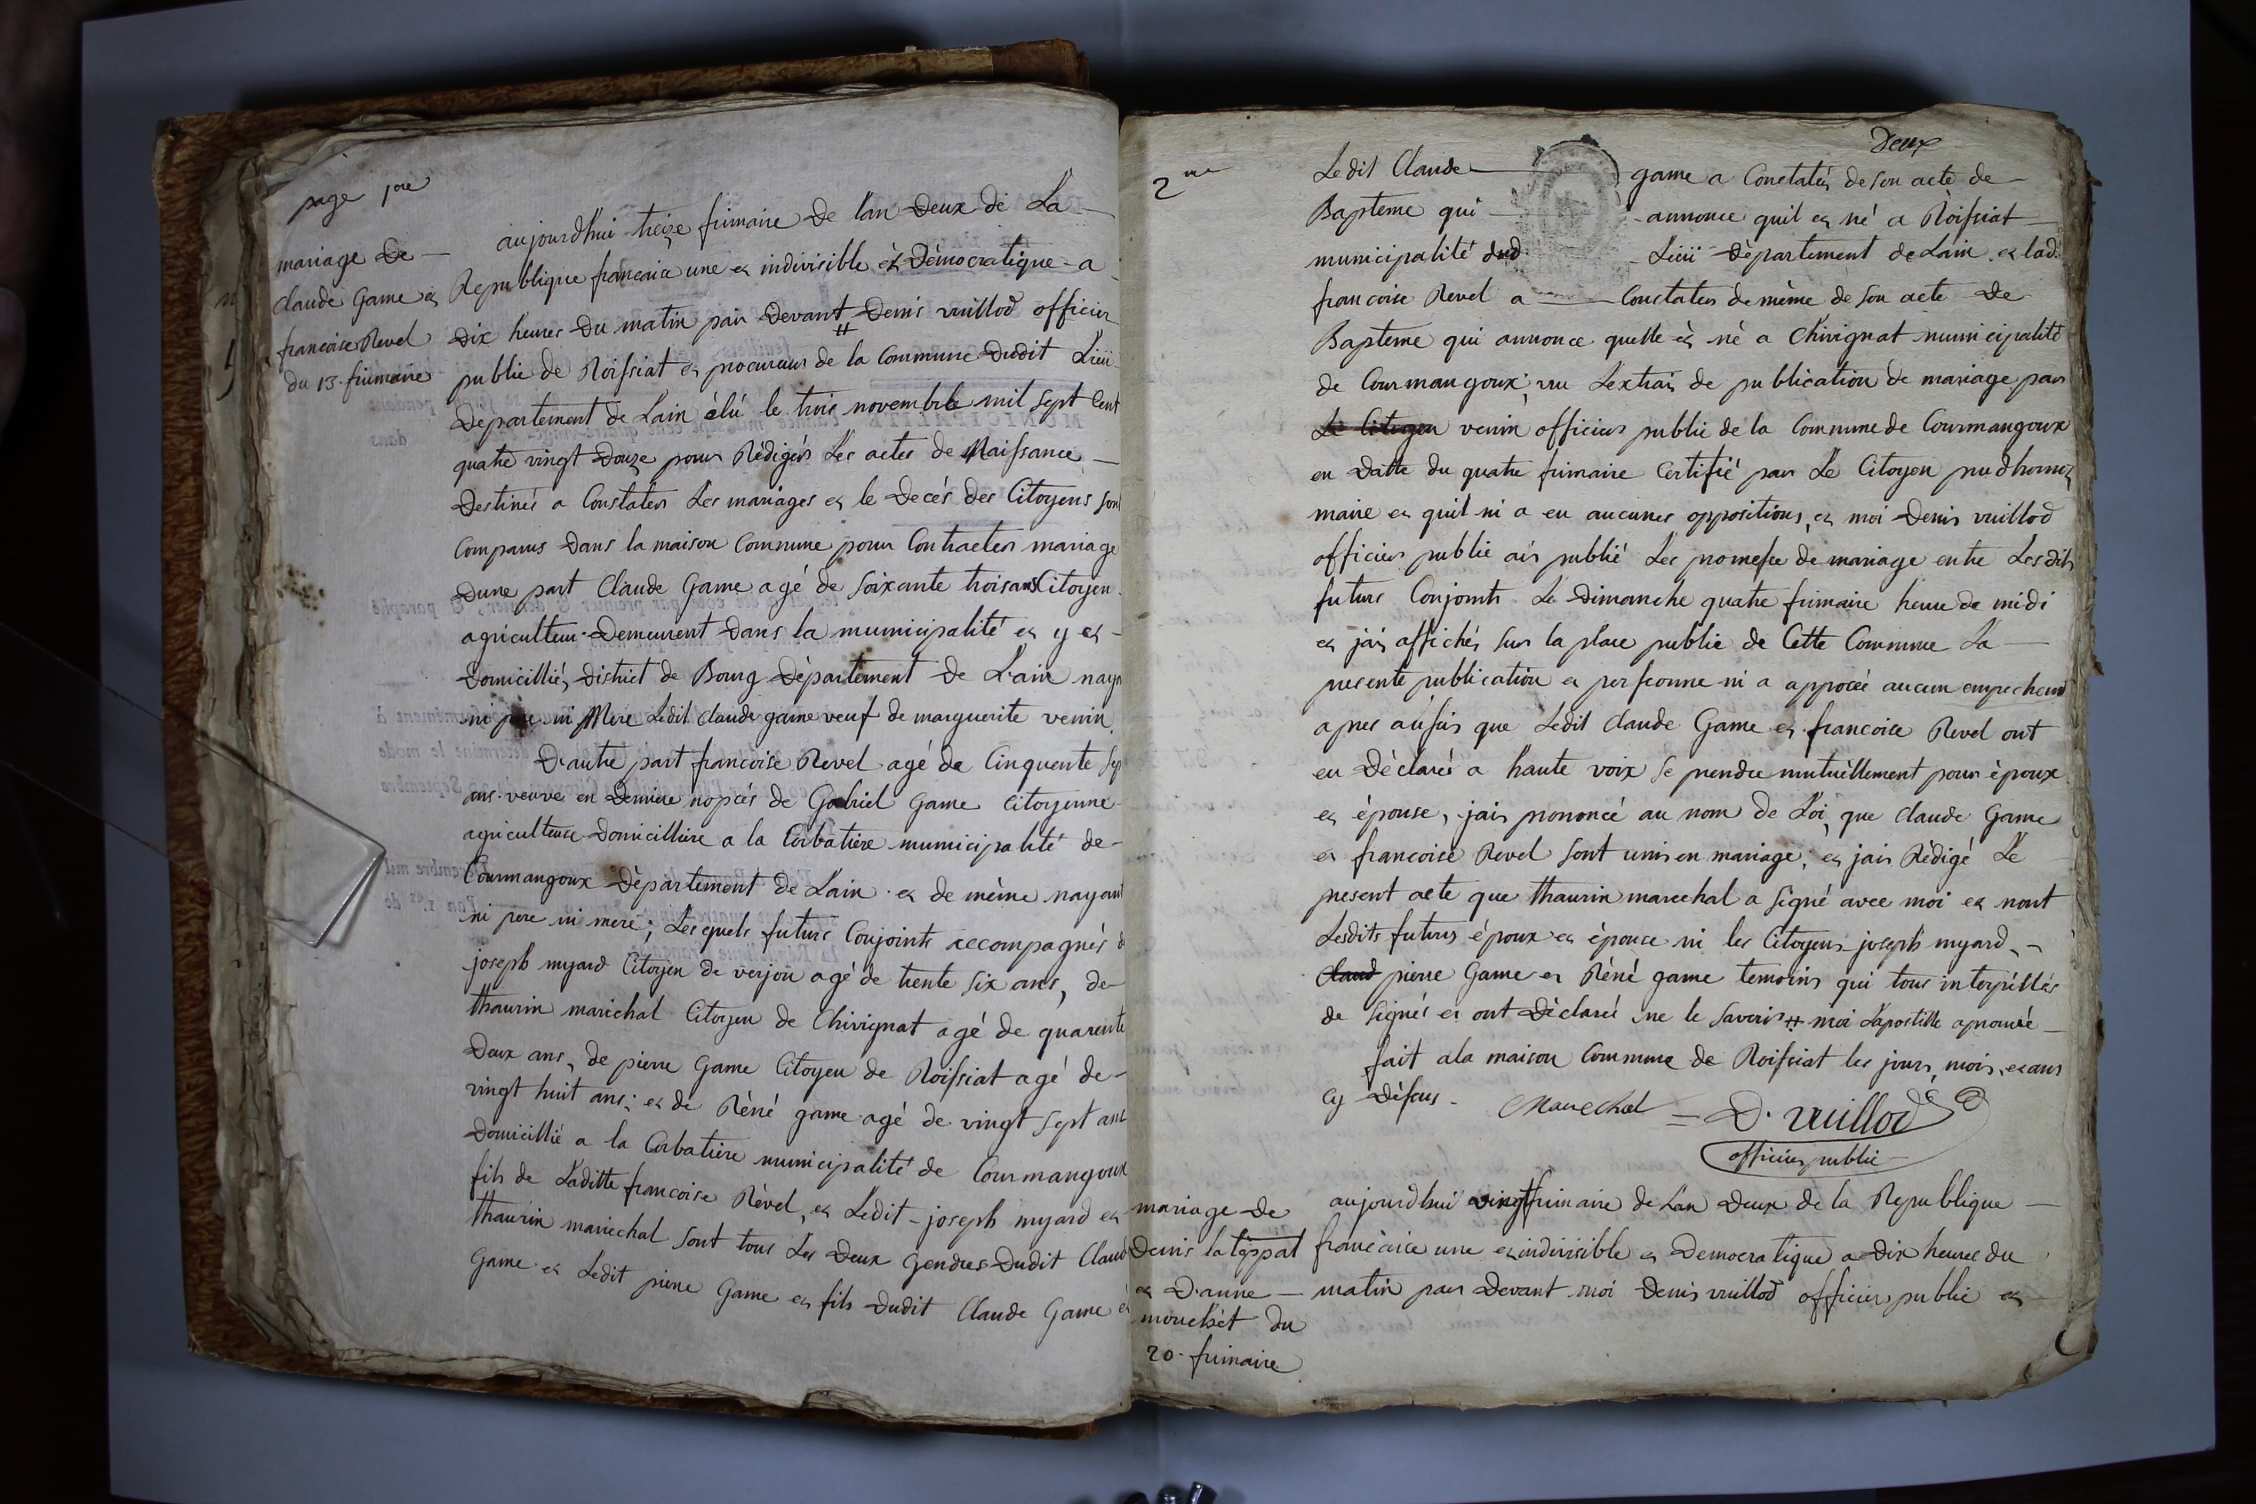 page 1ere
mariage de
claude Game et
francoise Revel
du 13. frimaire
aujourdhui treize frimaire de lan deux de La
Republique francaice une et indivisible et Démocratique a
dix heures du matin par devant # Denis vuillod officier
public de Roissiat et procureur de la Commune dudit Lieu
departement de Lain élû le trois novembre mil sept Cent
quatre vingt douze pour Rédigér Les actes de Naissance
destinés a Constater Les mariages et le decés des Citoyens sont
comparus dans la maison Commune pour Contracter mariage
dune part Claude Game agé de soixante trois ans Citoyen
agriculteur demeurent dans la municipalité et y et
domicillié, district de Bourg département de L'ain nayn
ni pere ni Mere Ledit claude game veuf de marguerite venin
D'autre part francoise Revel agé de Cinquente sep
ans veuve en derniere nopces de Gabriel Game citoyenne
agriculteuce domicilliere a la Corbatiere municipalité de
Courmangoux département de Lain et de mème nayant
ni pere ni mere; Lesquels futurs Conjoints accompagnés d
joseph myard Citoyen de verjon agé de trente six ans, de
thaurin marichal Citoyen de Chivignat agé de quarente
deux ans, de pierre Game Citoyen de Roissiat agé de
vingt huit ans; et de Réné game agé de vingt sept ans
domicillié a la Corbatiere municipalité de Courmangoux
fils de Laditte francoise Rével, et Ledit joseph myard et
thaurin marichal sont tous Les deux gendres dudit Claud
Game et Ledit pierre Game et fils dudit Claude Game et
2me
deux
Ledit Claude game a Constatér de son acte de
Bapteme qui annonce quil et né a Roissiat
municipalité dud. Lieu département de Lain et lad.
francoise Revel a Constater de mème de son acte de
Bapteme qui annonce quelle èt né a Chivignat municipalité
de Courmangoux; vu Lextrai de publication de mariage par
Le Citoyen venin officier public de la Commune de Courmangoux
en datte du quatre frimaire Certifié par Le Citoyen prudhomme
maire et quil ni a eu aucunes oppositions, et moi Denis vuillod
officier public ais publié Les promesse de mariage entre Lesdits
futurs Conjoints Le dimanche quatre frimaire heure de midi
et jais affichés sur la place public de Cette Commune La
presente publication et personne ni a apposée aucun empechem
apres aussis que Ledit claude Game et francoise Revel ont
eu déclarés a haute voix se prendre mutuèllement pour époux
et épouse, jais prononcé au nom de Loi, que claude Game
et francoise Revel sont unis en mariage; et jais Rédigé Le
present acte que thaurin marechal a signé avec moi et nont
Lesdits futurs époux et épouse ni les Citoyens joseph myard
claud pierre Game et Réné game temoins qui tous interpéllés
de signés et ont déclarés ne le savoir # moi Lapostille aprouvée
fait ala maison Commune de Roissiat les jours, mois, et ans
cy dessus.
Marechal = D. vuillod
officier public
mariage de
Denis la teppat
et D'anne
mouchèt du
20. frimaire
aujourdhui vingt frimaire de Lan deux de la Republique
francaice une et indivisible et Democratique a dix heures du
matin par devant moi Denis vuillod officier public et